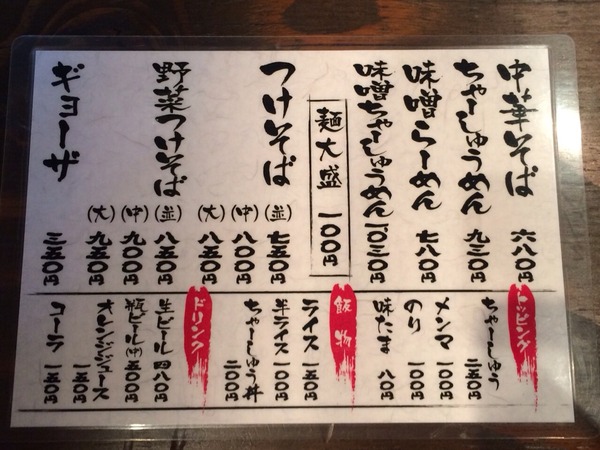 中華そば 六八〇円
ちゃーしゅうめん 九三〇円
味噌らーめん 七八〇円
味噌ちゃーしゅうめん 一〇三〇円
麺大盛 一〇〇円
つけそば
(並) 七五〇円
(中) 八〇〇円
(大) 八五〇円
野菜つけそば
(並) 八五〇円
(中) 九〇〇円
(大) 九五〇円
ギョーザ 三五〇円
トッピング
ちゃーしゅう 二五〇円
メンマ 一〇〇円
のり 一〇〇円
味たま 八〇円
飯物
ライス 一五〇円
半ライス 一〇〇円
ちゃーしゅう丼 二〇〇円
ドリンク
生ビール 四八〇円
瓶ビール(中) 五〇〇円
オレンジジュース 一五〇円
コーラ 一五〇円